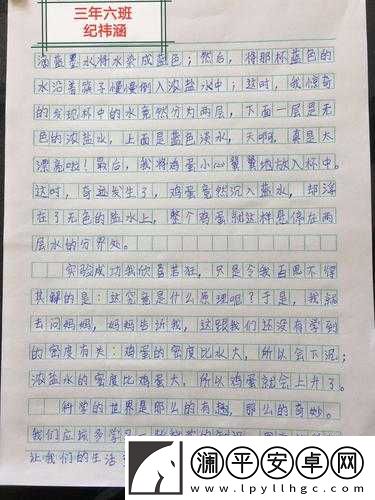 三年六班
纪祎涵
蓝墨水将水染成蓝色；然后，将那杯蓝色的
水沿着筷子慢慢倒入浓盐水中；这时，我惊奇
的发现杯中的水竟然分为两层，下面一层是无
色的浓盐水，上面是蓝色淡水，天啊，真是太
漂亮啦！最后，我将鸡蛋小心翼翼地放入杯中。
这时，奇迹发生了，鸡蛋竟然沉入盐水，却浮
在了无色的盐水上，整个鸡蛋就这样悬停在两
层水的分界处。
实验成功我欣喜若狂，只是令我百思不得
其解的是：这究竟是什么原理呢？于是，我
去问妈妈，妈妈告诉我，这跟我们还没有学到
的密度有关：鸡蛋的密度比水大，所以会下沉；
浓盐水的密度比鸡蛋大，所以鸡蛋就会上升了。
科学的世界是那么的有趣，那么的奇妙。
我们应该多学习一些
让我们的生活
澜平安卓网
www.lpyllhcj.com